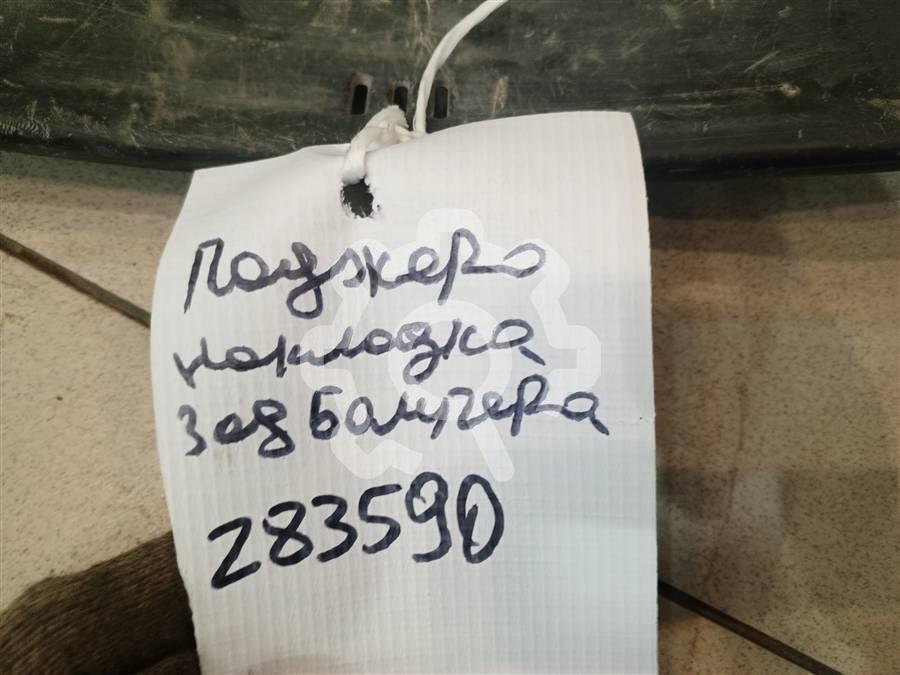 Паджеро
накладка
Зад бампера
283590